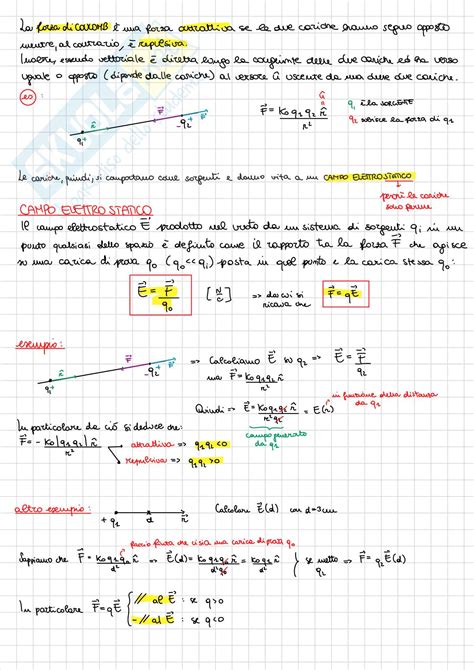 La forza di COULOMB è una forza attrattiva se le due cariche hanno segno opposto
mentre, al contrario, è repulsiva.
Inoltre, essendo vettoriale è diretta lungo la congiungente delle due cariche ed ha verso
uguale o opposto (dipende dalle cariche) al versore û uscente da una delle due cariche.
es:
q₁+ r̂ F⃗ -q₂ û
F⃗ = K₀ q₁ q₂ r̂ / r²
q₁ è la sorgente
q₂ subisce la forza di q₁
Le cariche, quindi, si comportano come sorgenti e danno vita a un CAMPO ELETTROSTATICO
perché le cariche
sono ferme
CAMPO ELETTROSTATICO
Il campo elettrostatico E⃗ prodotto nel vuoto da un sistema di sorgenti qᵢ in un
punto qualsiasi dello spazio è definito come il rapporto tra la forza F⃗ che agisce
su una carica di prova q₀ (q₀ << qᵢ) posta in quel punto e la carica stessa q₀:
E⃗ = F⃗ / q₀ [N/C] => da cui si ricava che F⃗ = qE⃗
esempio:
q₁+ r̂ F⃗ -q₂
=> Calcoliamo E⃗ su q₂ => E⃗ = F⃗ / q₂
ma F⃗ = K₀ q₁ q₂ r̂ / r²
in funzione della distanza
da q₁
Quindi => E⃗ = K₀ q₁ q₂ r̂ / r² q₂ = E(r)
campo generato
da q₁
In particolare da ciò si deduce che:
F⃗ = - K₀ |q₁ q₂| r̂ / r²
attrattiva => q₁q₂ < 0
repulsiva => q₁q₂ > 0
altro esempio: +q₁ d r̂ Calcolare E⃗(d) con d=3cm
faccio finta che ci sia una carica di prova q₀
Sappiamo che F⃗ = K₀ q₁ q₀ r̂ / d² => E⃗(d) = K₀ q₁ q₀ r̂ / d² q₀ = K₀ q₁ r̂ / d² } se metto q₂ => F⃗ = q₂ E⃗(d)
In particolare F⃗ = qE⃗ { // al E⃗ : se q>0
-// al E⃗ : se q<0